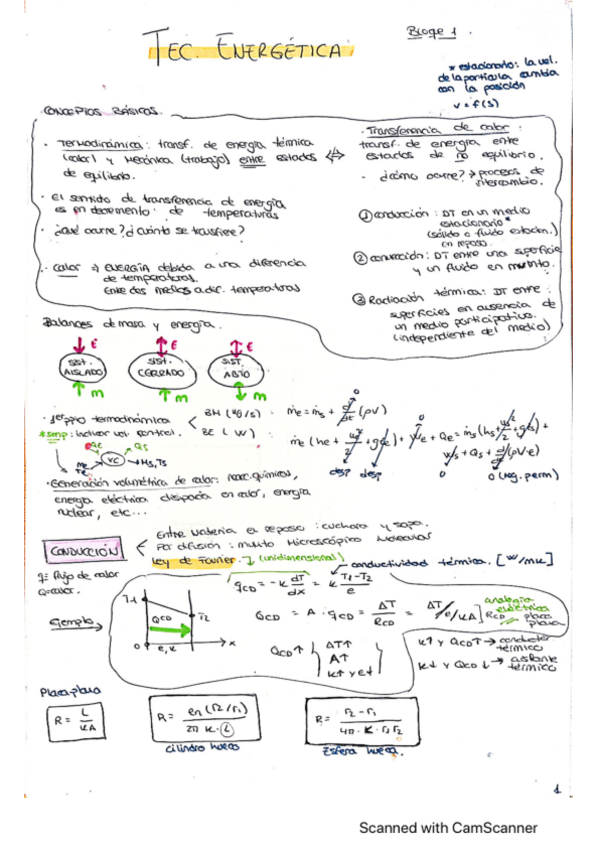 TEC. ENERGÉTICA.
Bloque 1.
* estacionario: la vel.
de la partícula cambia
con la posición
v = f(s)
CONCEPTOS BÁSICOS.
· Termodinámica: transf. de energía térmica
(calor) y mecánica (trabajo) entre estados ⇎
de equilibrio.
· El sentido de transferencia de energía
es en decremento de temperaturas
· ¿Qué ocurre? ¿cuánto se transfiere?
· calor ⇒ ENERGÍA debida a una diferencia
de temperaturas.
Entre dos medios a dif. temperaturas
· Transferencia de calor:
transf. de energía entre
estados de no equilibrio.
· ¿cómo ocurre? → procesos de
intercambio.
① conducción: DT en un medio
estacionario
(sólido o fluido estacion.)
en reposo
② convección: DT entre una superficie
y un fluido en mvnto.
③ Radiación térmica: DT entre
superficies en ausencia de
un medio participativo.
(independiente del medio)
Balances de masa y energía.
E E E
SIST. AISLADO
SIST. CERRADO
SIST. ABTO
m m m
· 1er ppio termodinámica
BM (kg/s): ṁe = ṁs + d/dt (ρV)
BE (W):
0 0 0
ṁe (he + ue²/2 + gze) + We + Qe = ṁs (hs + us²/2 + gzs) +
Ws + Qs + d/dt (ρV·e)
desp desp 0 0 (rég. perm)
* smp: indicar vol. control.
Qe Qs
VC
ṁs, Ts
· Generación volumétrica de calor: reac. químicas,
energía eléctrica disipada en calor, energía
nuclear, etc...
CONDUCCIÓN
Entre materia en reposo: cuchara y sopa.
Por difusión: mvnto Microscópico Molecular
Ley de Fourier. ↓ (unidimensional)
conductividad térmica. [W/mK]
q̇: flujo de calor
Q=calor.
q̇CD = -k dT/dx = k T1-T2/e
Ejemplo
T1
QCD
T2
0 e, k x
QCD = A · q̇CD = ΔT/RCD = ΔT/e/kA] RCD = placa
plana
analogía
eléctrica
QCD↑ ΔT↑
A↑
k↑ y e↓
k↑ y QCD↑ → conductor
térmico
k↓ y QCD↓ → aislante
térmico
Placa plana
R = L/kA
R = en (r2/r1)/2π k·L
Cilindro hueco
R = r2 - r1/4π · k · r1 r2
Esfera hueca.
1
Scanned with CamScanner